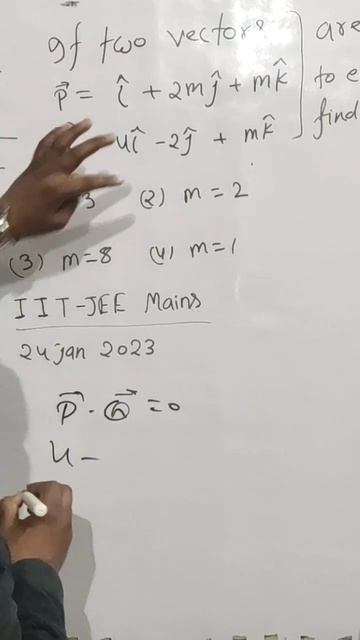 If two vectors are
P⃗ = î + 2mĵ + mk̂ to e
4î - 2ĵ + mk̂ find
3 (2) m = 2
(3) m=8 (4) m=1
IIT-JEE Mains
24 jan 2023
P⃗ · Q⃗ = 0
4 -